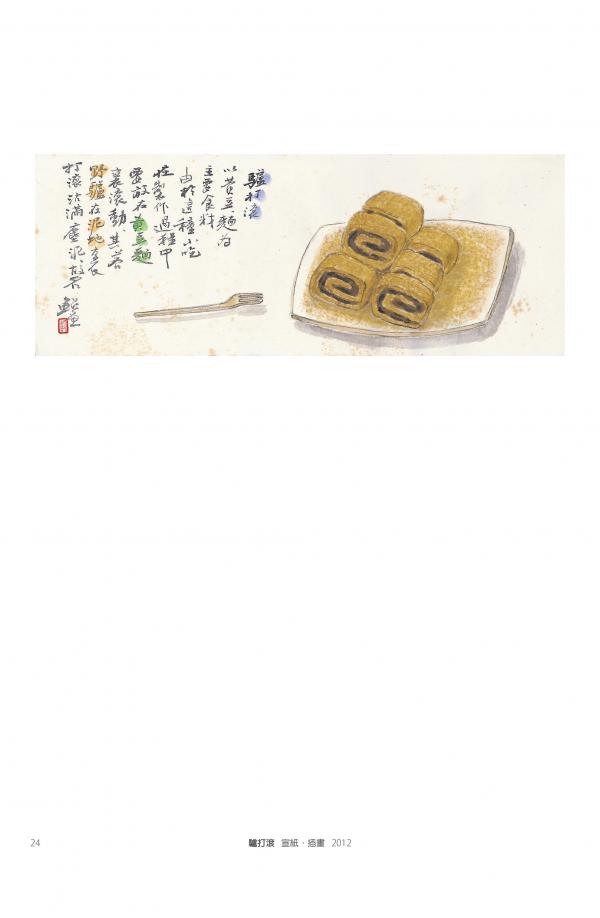 驢打滾
以黃豆麵為
主要食料
由於這種小吃
在製作過程中
要放在黃豆麵
裏滾動,其若
野驢在泥地裏
打滾沾滿塵泥,故名
24
驢打滾 宣紙·插畫 2012